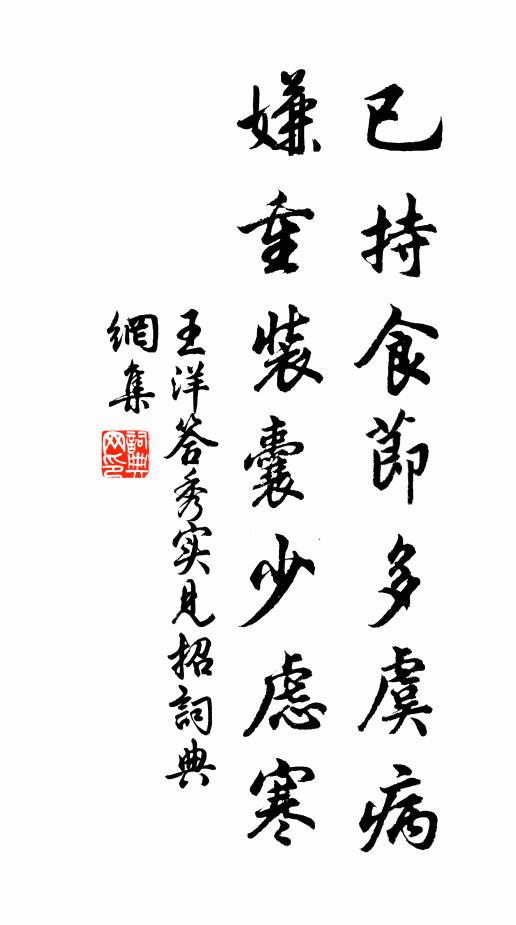 已持食節多虞病
嫌重裝囊少慮寒
王洋答秀实見招詞典
網集
詞典
网印